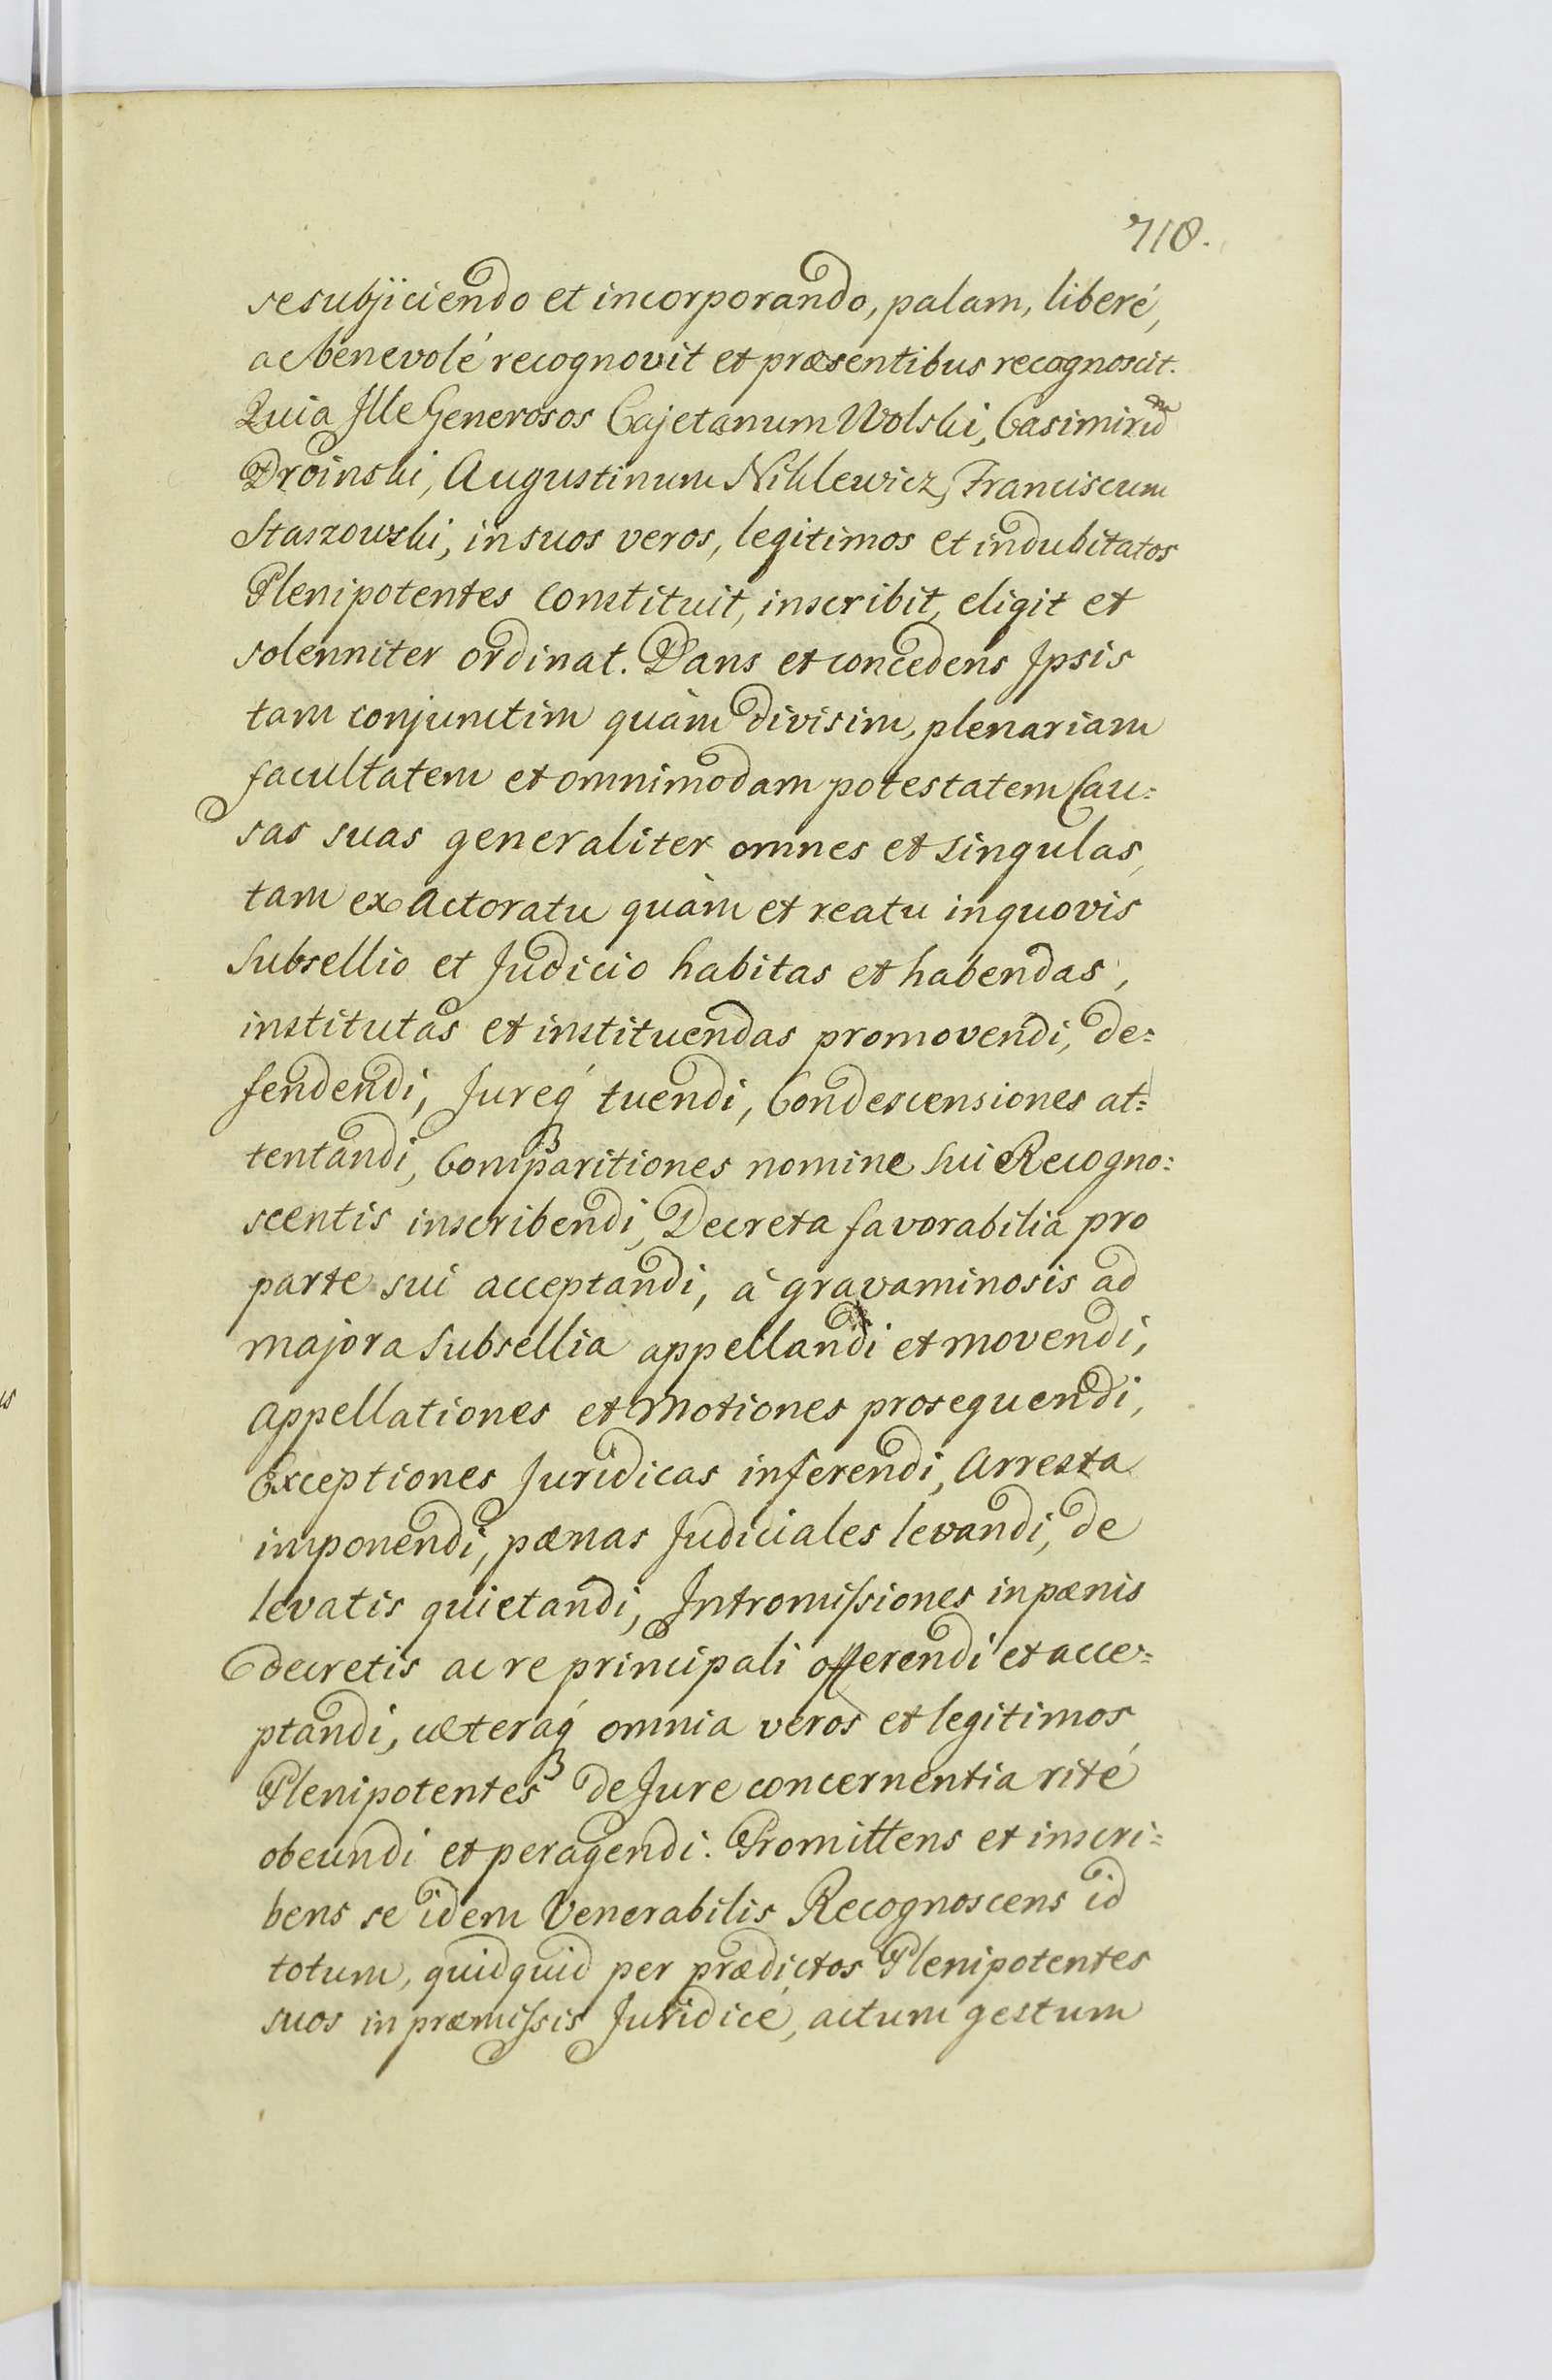 718.
se subjiciendo et incorporando, palam, liberé,
ac benevolé recognovit et præsentibus recognoscit.
Quia Ille Generosos Cajetanum Wolski, Casimirū
Droinski, Augustinum Niklewicz, Franciscum
Staszowski, in suos veros, legitimos et indubitatos
Plenipotentes constituit, inscribit, eligit et
solenniter ordinat. Dans et concedens Ipsis
tam conjunctim quàm divisim, plenariam
facultatem et omnimodam potestatem Cau=
sas suas generaliter omnes et singulas,
tam ex Actoratu quàm et reatu in quovis
Subsellio et Judicio habitas et habendas,
institutas et instituendas promovendi, de=
fendendi, Jureq́ tuendi, Condescensiones at=
tentandi, Comparitiones nomine sui Recogno=
scentis inscribendi, Decreta favorabilia pro
parte sui acceptandi, à gravaminosis ad
majora Subsellia appellandi et movendi,
Appellationes et Motiones prosequendi,
Exceptiones Juridicas inferendi, Arresta
imponendi, pænas Judiciales levandi, de
levatis quietandi, Intromissiones in pænis
decretis ac re principali offerendi et acce=
ptandi, cæteraq́ omnia veros et legitimos
Plenipotentes de Jure concernentia rité
obeundi et peragendi. Promittens et inscri=
bens se idem Venerabilis Recognoscens id
totum, quidquid per prædictos Plenipotentes
suos in præmissis Juridicé, actum gestum